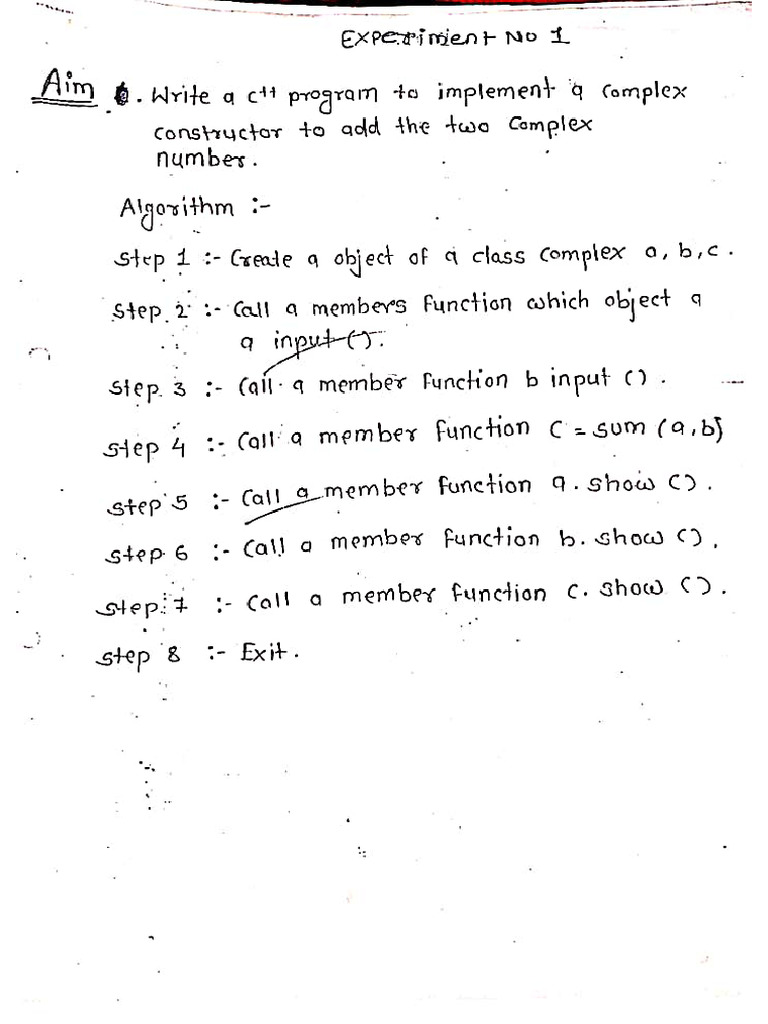 Experiment No 1
Aim . Write a C++ program to implement a Complex
constructor to add the two Complex
number.
Algorithm :-
Step 1 :- Create a object of a class complex a, b, c.
Step 2 :- Call a members function which object a
a input ().
Step 3 :- Call a member function b input ().
Step 4 :- Call a member function C = sum (a, b)
Step 5 :- Call a member function a. show ().
Step 6 :- Call a member function b. show ().
Step 7 :- Call a member function c. show ().
Step 8 :- Exit.